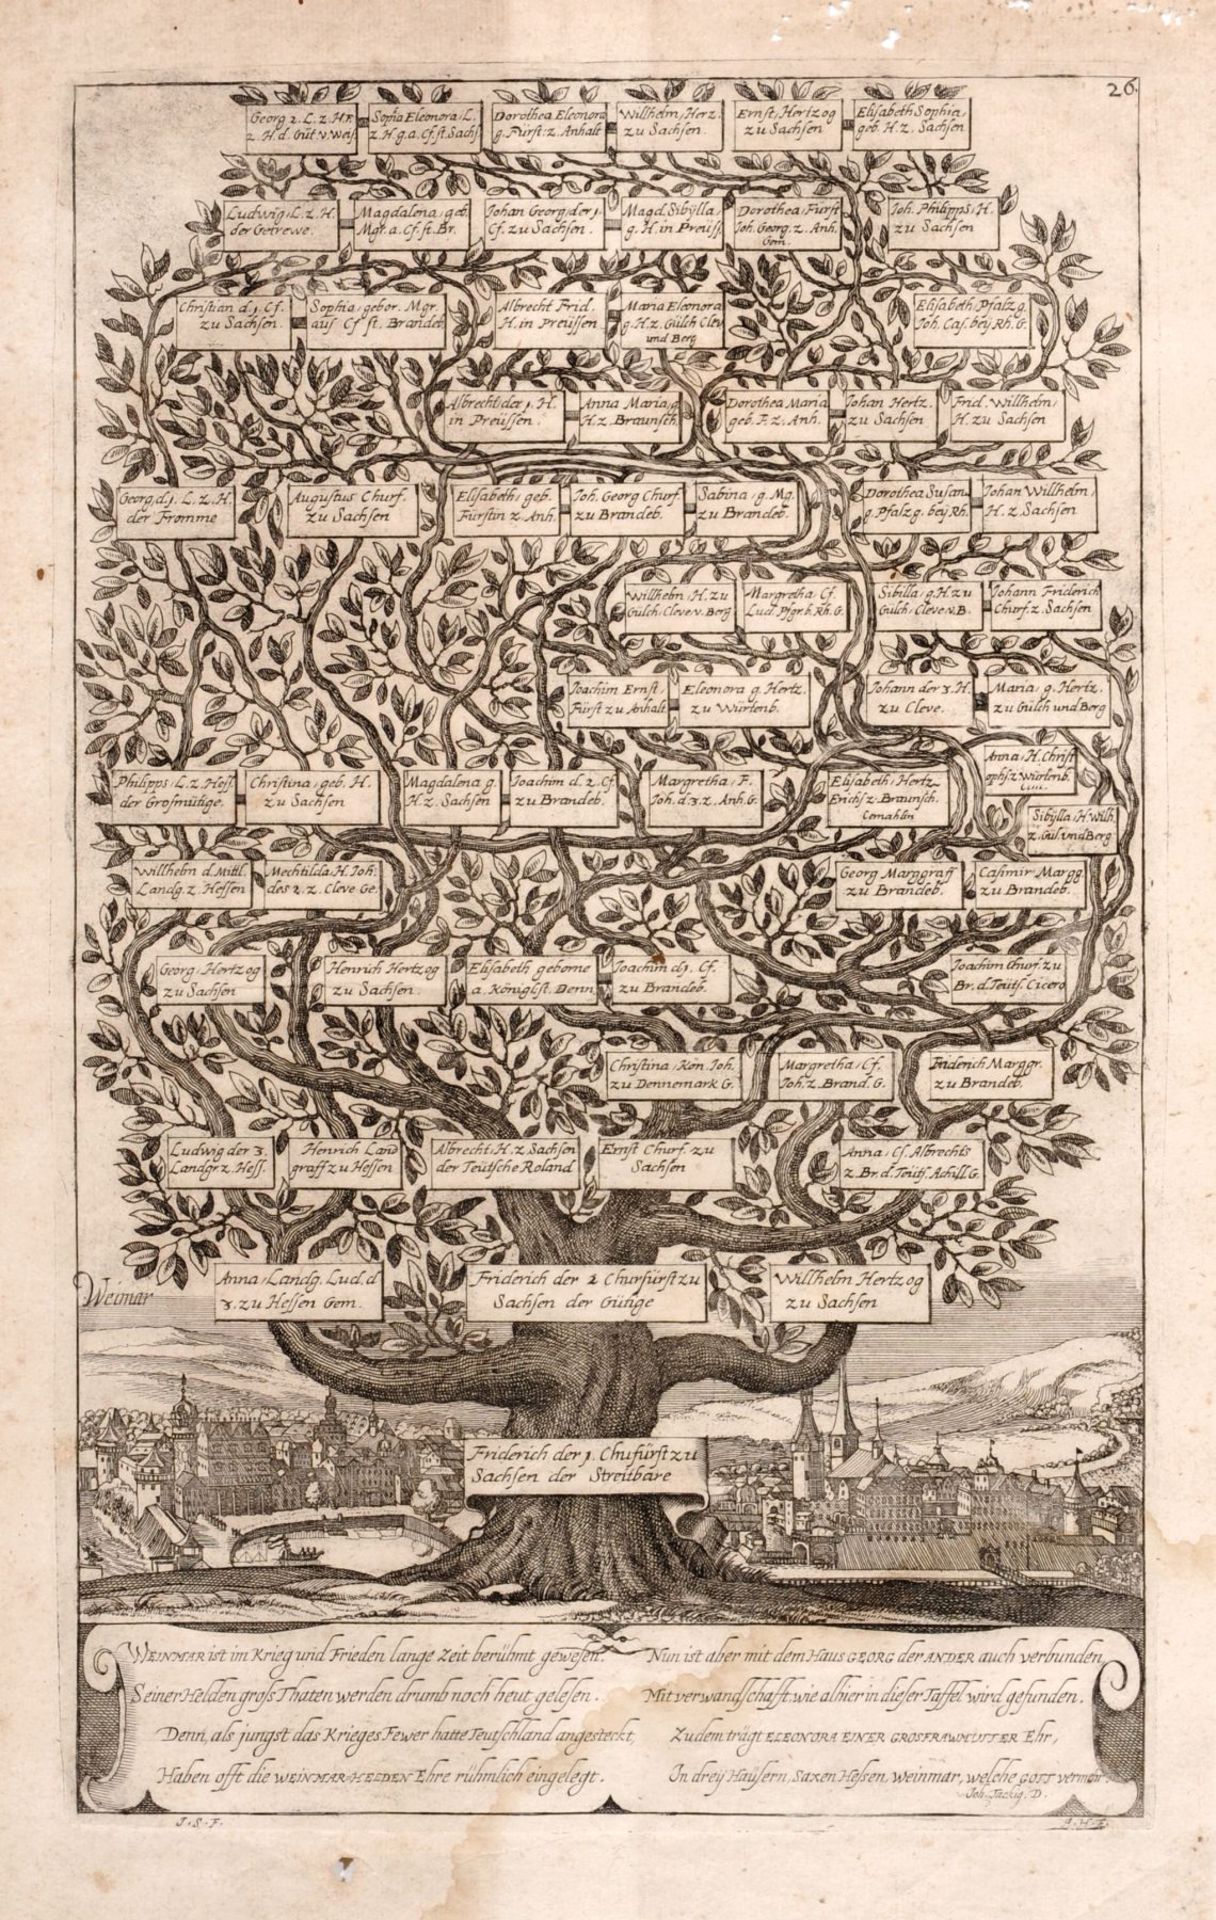 26.
Georg 2. L. z. H. F.
z. H. d. Güt. v. Weis.
Sopia Eleonora, L.
z. H. g. a. Cf. st. Sachs.
Dorothea Eleonora
g. Fürst. z. Anhalt
Willhelm, Herz.
zu Sachsen.
Ernst, Hertzog
zu Sachsen
Elisabeth Sophia,
geb. H. z. Sachsen
Ludwig, L. z. H.
der Getrewe.
Magdalena, geb.
Mgr. a. Cf. st. Br.
Johan Georg, der 1.
Cf. zu Sachsen.
Magd. Sibÿlla,
g. H. in Preüss.
Dorothea, Fürst
Joh. Georg. z. Anh.
Gem.
Joh. Philipps, H.
zu Sachsen
Christian d. 1. Cf.
zu Sachsen.
Sophia, gebor. Mgr.
aus Cf. st. Brandeb.
Albrecht Frid.
H. in Preüssen.
Maria Eleonora
g. H. z. Gülch Clev
und Berg
Elisabeth, Pfalz g.
Joh. Cas. beÿ Rh. G.
Albrecht, der 1. H.
in Preüssen.
Anna Maria, g.
H. z. Braunsch.
Dorothea Maria
geb. F. z. Anh.
Johan Hertz.
zu Sachsen
Frid. Willhelm,
H. zu Sachsen
Georg, d. 1. L. z. H.
der Fromme
Augustus Churf.
zu Sachsen
Elisabeth, geb.
Fürstin z. Anh.
Joh. Georg Churf.
zu Brandeb.
Sabina, g. Mg.
zu Brandeb.
Dorothea Susan
g. Pfalz g. beÿ Rh.
Johan Willhelm,
H. z. Sachsen
Willhelm, H. zu
Gülch, Cleve v. Berg
Margretha, Cf.
Lud. Pfgr b. Rh. G.
Sibilla, g. H. zu
Gülch, Cleve v. B.
Johann Friderich
Churf. z. Sachsen
Joachim Ernst,
Fürst zu Anhalt
Eleonora g. Hertz.
zu Würtenb.
Johann der 3. H.
zu Cleve.
Maria, g. Hertz.
zu Gülch und Berg
Anna, H. Christ
oph, z. Würtenb.
Philipps, L. z. Hess
der Grosmütige.
Christina, geb. H.
zu Sachsen
Magdalena g.
H. z. Sachsen
Joachim d. 2. Cf.
zu Brandeb.
Margretha, F.
Joh. d. 3. z. Anh. G.
Elisabeth, Hertz.
Erichs z. Braunsch.
Gemahlin
Sibÿlla, H. Wilh.
z. Gül. und Berg
Willhelm d. Mittl.
Landg. z. Hessen
Mechtilda, H. Joh.
des 2. z. Cleve Ge.
Georg Marggraff
zu Brandeb.
Casimir Margg.
zu Brandeb.
Georg, Hertzog
zu Sachsen
Henrich Hertzog
zu Sachsen.
Elisabeth geborne
a. Königl. st. Denn.
Joachim d. 1. Cf.
zu Brandeb.
Joachim Churf. zu
Br. d. Teuts. Cicero
Christina, Kön. Joh.
zu Dennemark G.
Margretha, Cf.
Joh. z. Brand. G.
Friderich Marggr.
zu Brandeb.
Ludwig der 3.
Landgr. z. Hess.
Henrich Land
graff zu Hessen
Albrecht, H. z. Sachsen
der Teütsche Roland
Ernst Churf. zu
Sachsen
Anna, Cf. Albrechts
z. Br. d. Teuts. Achill. G.
Weimar
Anna, Landg. Lud. d
3. zu Hessen Gem.
Friderich der 2 Churfürst zu
Sachsen der Gütige
Willhelm Hertzog
zu Sachsen
Friderich der 1. Chufürst zu
Sachsen der Streitbare
WEINMAR ist im Krieg und Frieden lange Zeit berühmt gewesen.
Seiner Helden gross Thaten werden drumb noch heut gelesen.
Denn, als jungst das Krieges Fewer hatte Teutschland angesteckt,
Haben offt die WEINMAR-HELDEN Ehre rühmlich eingelegt.
Nun ist aber mit dem Haus GEORG der ANDER auch verbunden,
Mit verwandschafft, wie alhier in dieser Taffel wird gefunden.
Zu dem trägt ELEONORA EINER GROSFRAWMUTTER Ehr,
In dreÿ Häusern, Saxen Hessen, Weinmar, welche GOTT vermehr.
Joh. Tackig. D.
J. S. F.